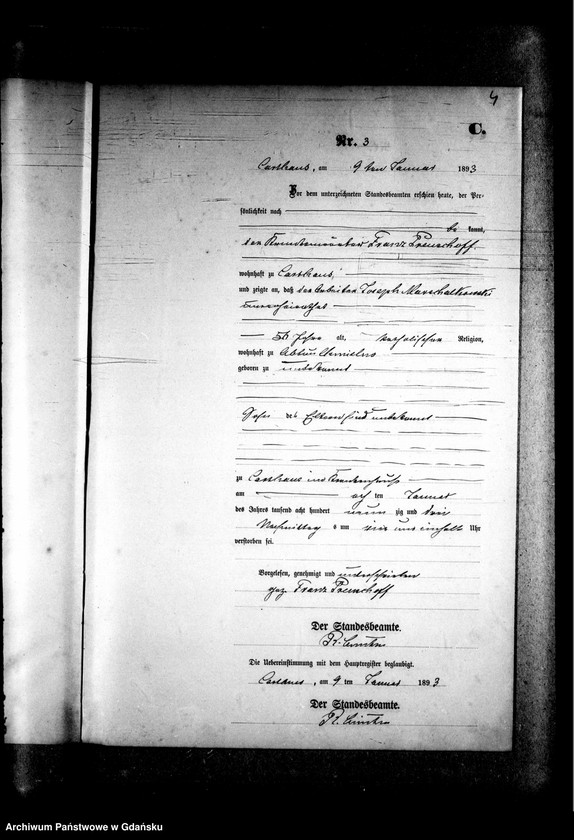 4
C.
Nr. 3
Carthaus, am 9 ten Januar 1893
Vor dem unterzeichneten Standesbeamten erschien heute, der Per-
sönlichkeit nach
be kannt,
der Krankenwärter Franz Preuschoff
wohnhaft zu Carthaus,
und zeigte an, daß der Arbeiter Joseph Marschalkowski
unverheirathet
Jahre alt, katholischer Religion,
wohnhaft zu
geboren zu unbekannt
Sohn der Eltern sind unbekannt
zu Carthaus im Krankenhause
am acht ten Januar
des Jahres tausend acht hundert neun zig und drei
Nachmittag s um vier und einhalb Uhr
verstorben sei.
Vorgelesen, genehmigt und unterschrieben
gez. Franz Preuschoff
Der Standesbeamte.
Die Uebereinstimmung mit dem Hauptregister beglaubigt.
Carthaus, am 9 ten Januar 1893
Der Standesbeamte.
Archiwum Państwowe w Gdańsku